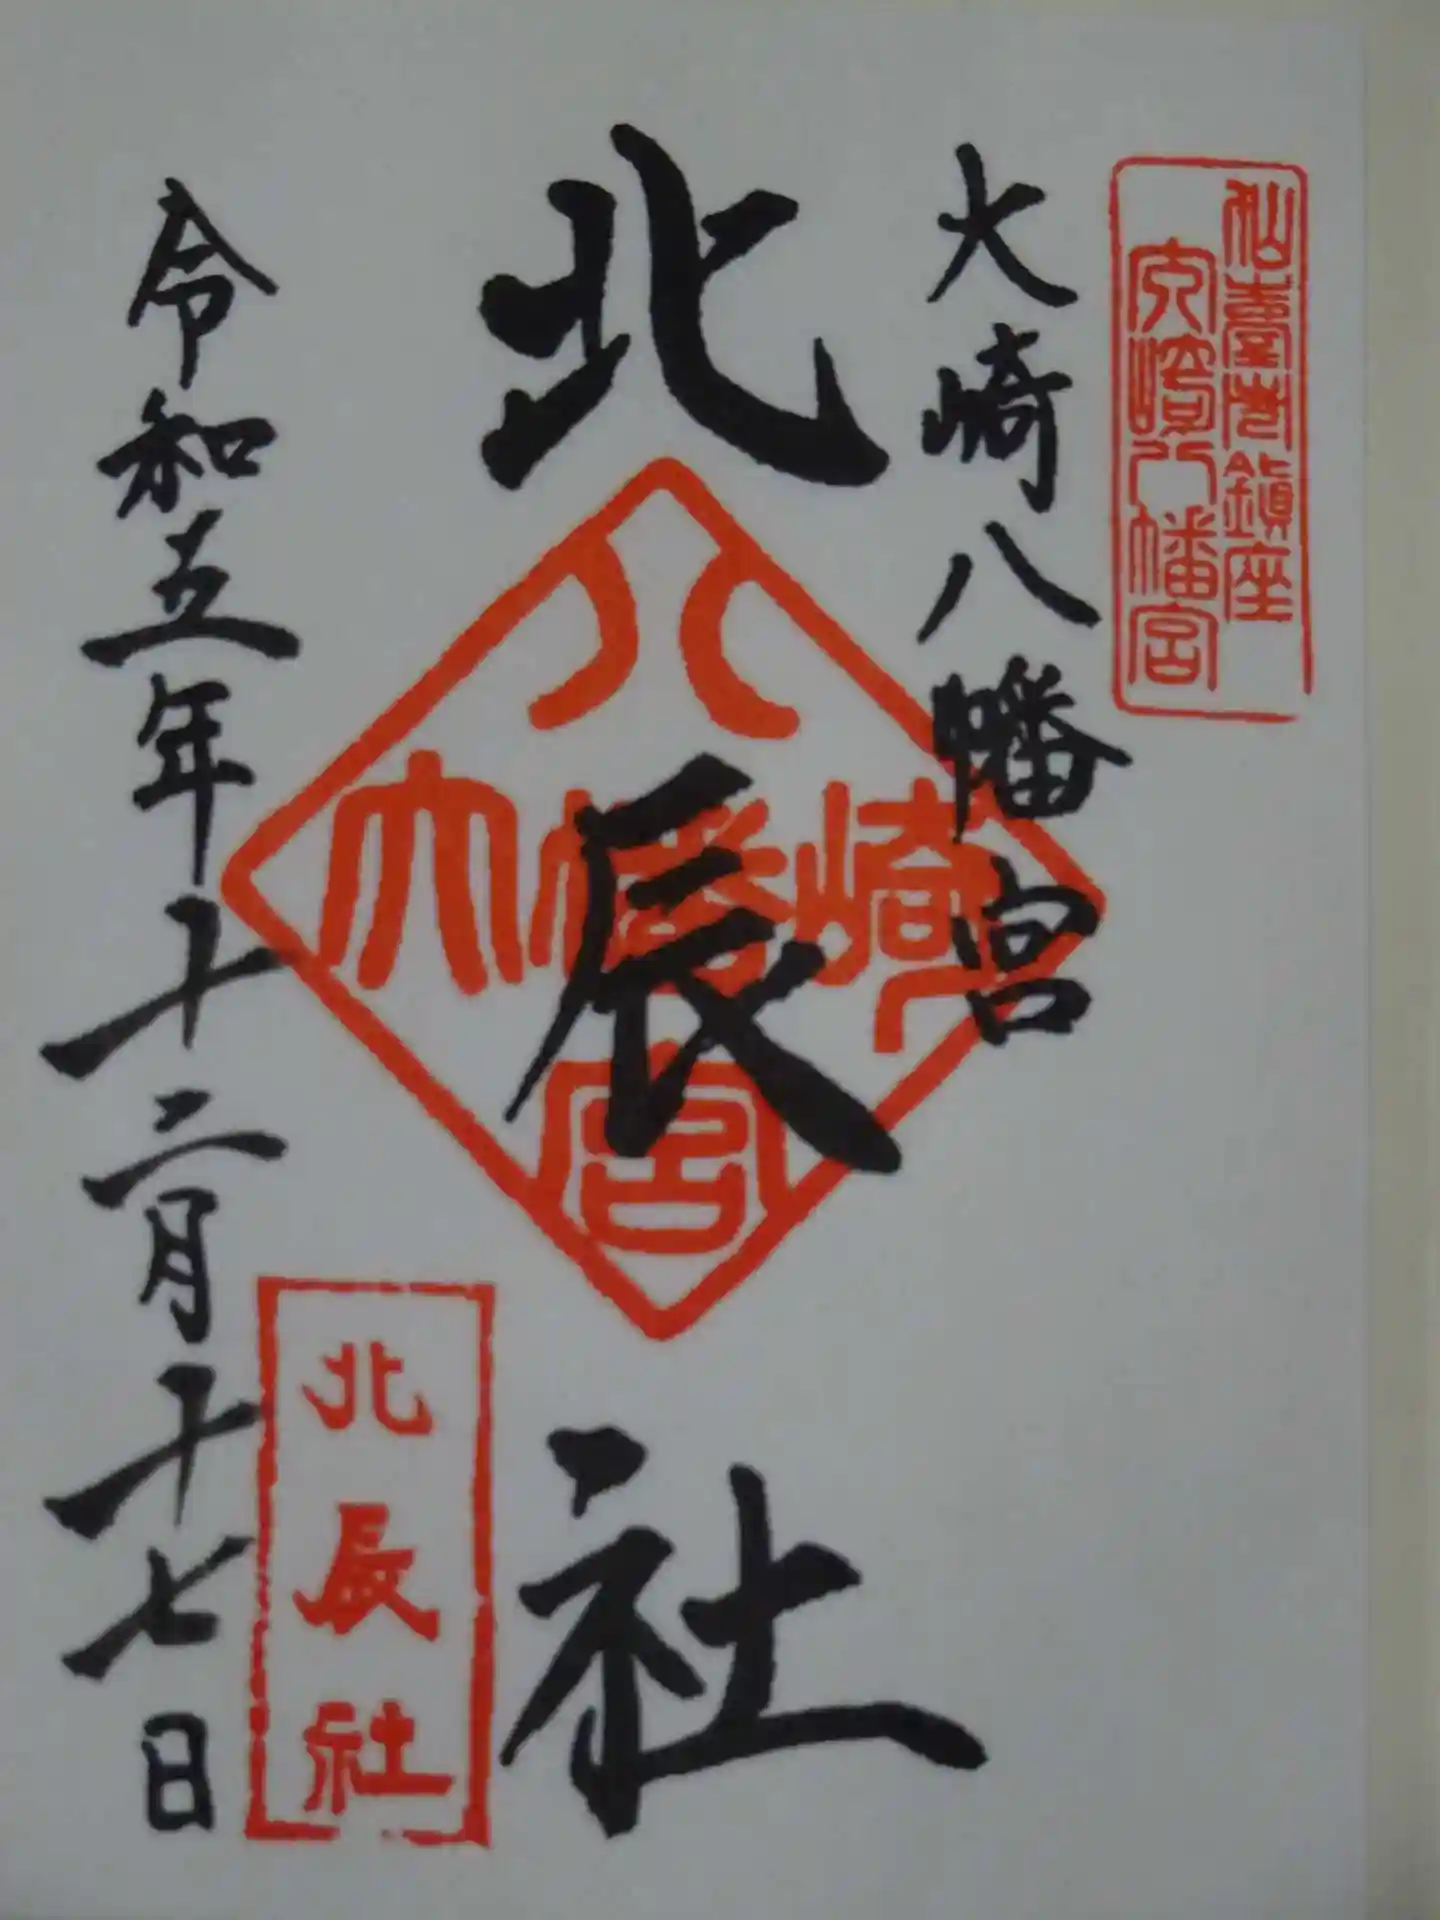 仙臺市鎮座
大崎八幡宮
大崎八幡宮
北辰社
八
大幡崎
宮
北辰社
令和五年十二月十七日